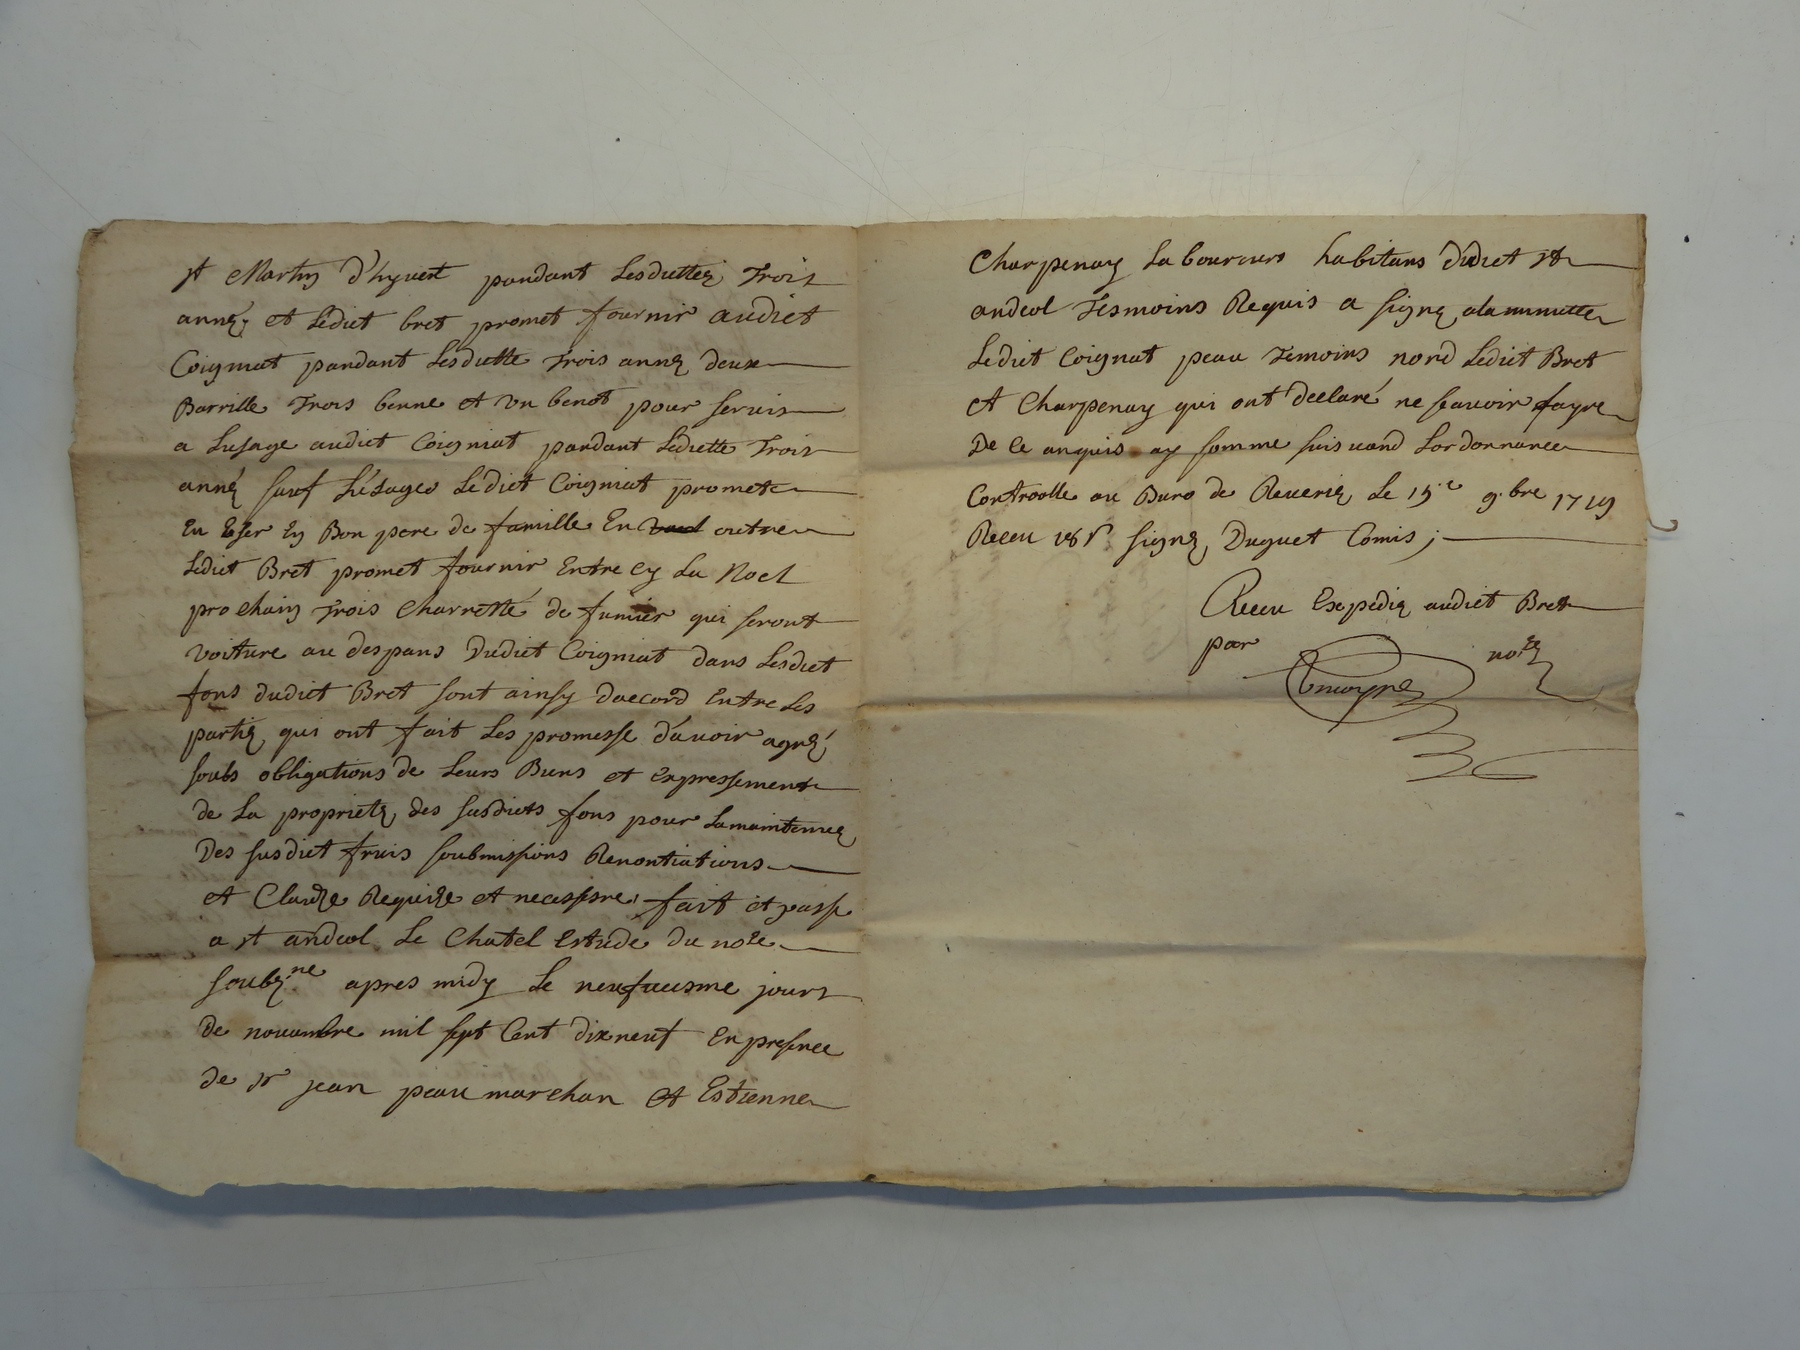 st Martin d'hyvert pandant Lesdittes Trois
année et Lediet bret promet fournir audiet
Coigniat pandant Lesditte Trois anné deux
Barrille Trois benne et un benot pour servir
a Lusage audiet Coigniat pandant Lediette Trois
anné sauf Lésages Lediet Coigniat promet
En User En Bon pere de famille En outre
Lediet Bret promet fournir Entre cy La Noel
prochain Trois Charretté de fumier qui seront
voiture au despans Dudiet Coigniat dans Lesdiet
fons dudiet Bret sont ainsy daccord Entre Les
partie qui ont fait Les promesse d'avoir agréé
soubs obligations de Leurs Biens et Expressement
de La propriete des susdiets fons pour Lamaintenue
Des susdiet fruis soubmissions Renontiations
et Clauze Requize et necessere fait et passe
a st andeol Le Chatel Estude du nore
soubz.ne apres midy Le neufviesme jours
De novambre mil sept Cent dix neuf En presence
de sr jean peau marchan et Estienne
Charpenay Laboureurs habitans dudiet st
andeol Tesmoins Requis a signe alaminutte
Lediet Coignat peau Temoins nord Lediet Bret
et Charpenay qui ont declaré ne scavoir fayre
De Ce anquis ay somme suivand Lordonnance
Controolle au Buro de Reverie Le 15.e 9.bre 1719
Receu signe Duguet Comis;
Receu Expedie audiet Bret
par nore